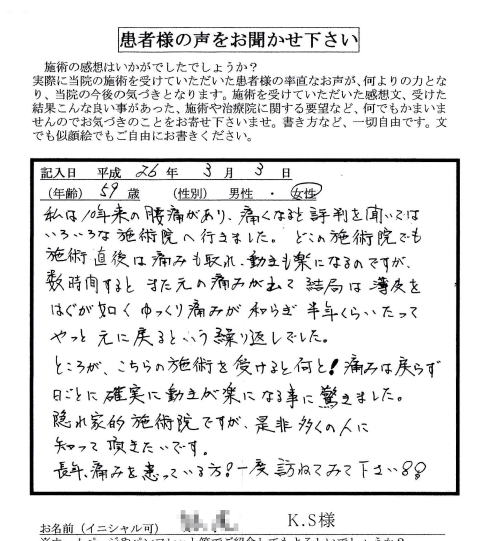 患者様の声をお聞かせ下さい
施術の感想はいかがでしたでしょうか？
実際に当院の施術を受けていただいた患者様の率直なお声が、何よりの力とな
り、当院の今後の気づきとなります。施術を受けていただいた感想文、受けた
結果こんな良い事があった、施術や治療院に関する要望など、何でもかまいま
せんのでお気づきのことをお寄せ下さいませ。書き方など、一切自由です。文
でも似顔絵でもご自由にお書きください。
記入日 平成 26 年 3 月 3 日
(年齢) 59 歳 (性別) 男性 ・ 女性
私は10年来の腰痛があり、痛くなると評判を聞いては
いろいろな施術院へ行きました。どこの施術院でも
施術直後は痛みも取れ、動きも楽になるのですが、
数時間すると また元の痛みが出て 結局は 薄皮を
はぐが如く ゆっくり痛みが 和らぎ 半年くらいたって
やっと 元に戻るという繰り返しでした。
ところが、こちらの施術を受けると何と！痛みは戻らず
日ごとに確実に動きが楽になる事に驚きました。
隠れ家的施術院ですが、是非多くの人に
知って頂きたいです。
長年、痛みを患っている方！一度訪ねてみて下さい!!
お名前（イニシャル可） K.S様